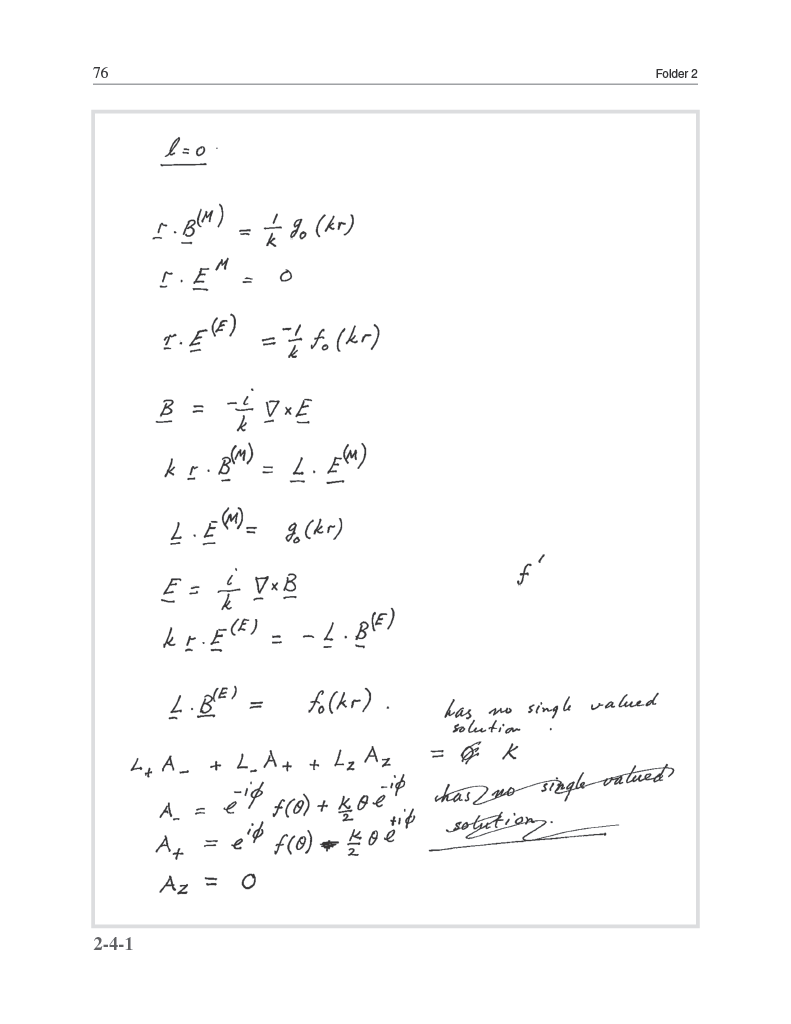 76 Folder 2
l = 0
r · B^(M) = 1/k g₀ (kr)
r · E^M = 0
r · E^(E) = -1/k f₀ (kr)
B = -i/k ∇ × E
k r · B^(M) = L · E^(M)
L · E^(M) = g₀ (kr)
f ′
E = i/k ∇ × B
k r · E^(E) = - L · B^(E)
L · B^(E) = f₀(kr) .
has no single valued
solution .
L₊ A₋ + L₋ A₊ + L_z A_z = K
A₋ = e^-iφ f(θ) + K/2 θ e^-iφ
has no single valued
A₊ = e^iφ f(θ) - K/2 θ e^+iφ
solution.
A_z = 0
2-4-1